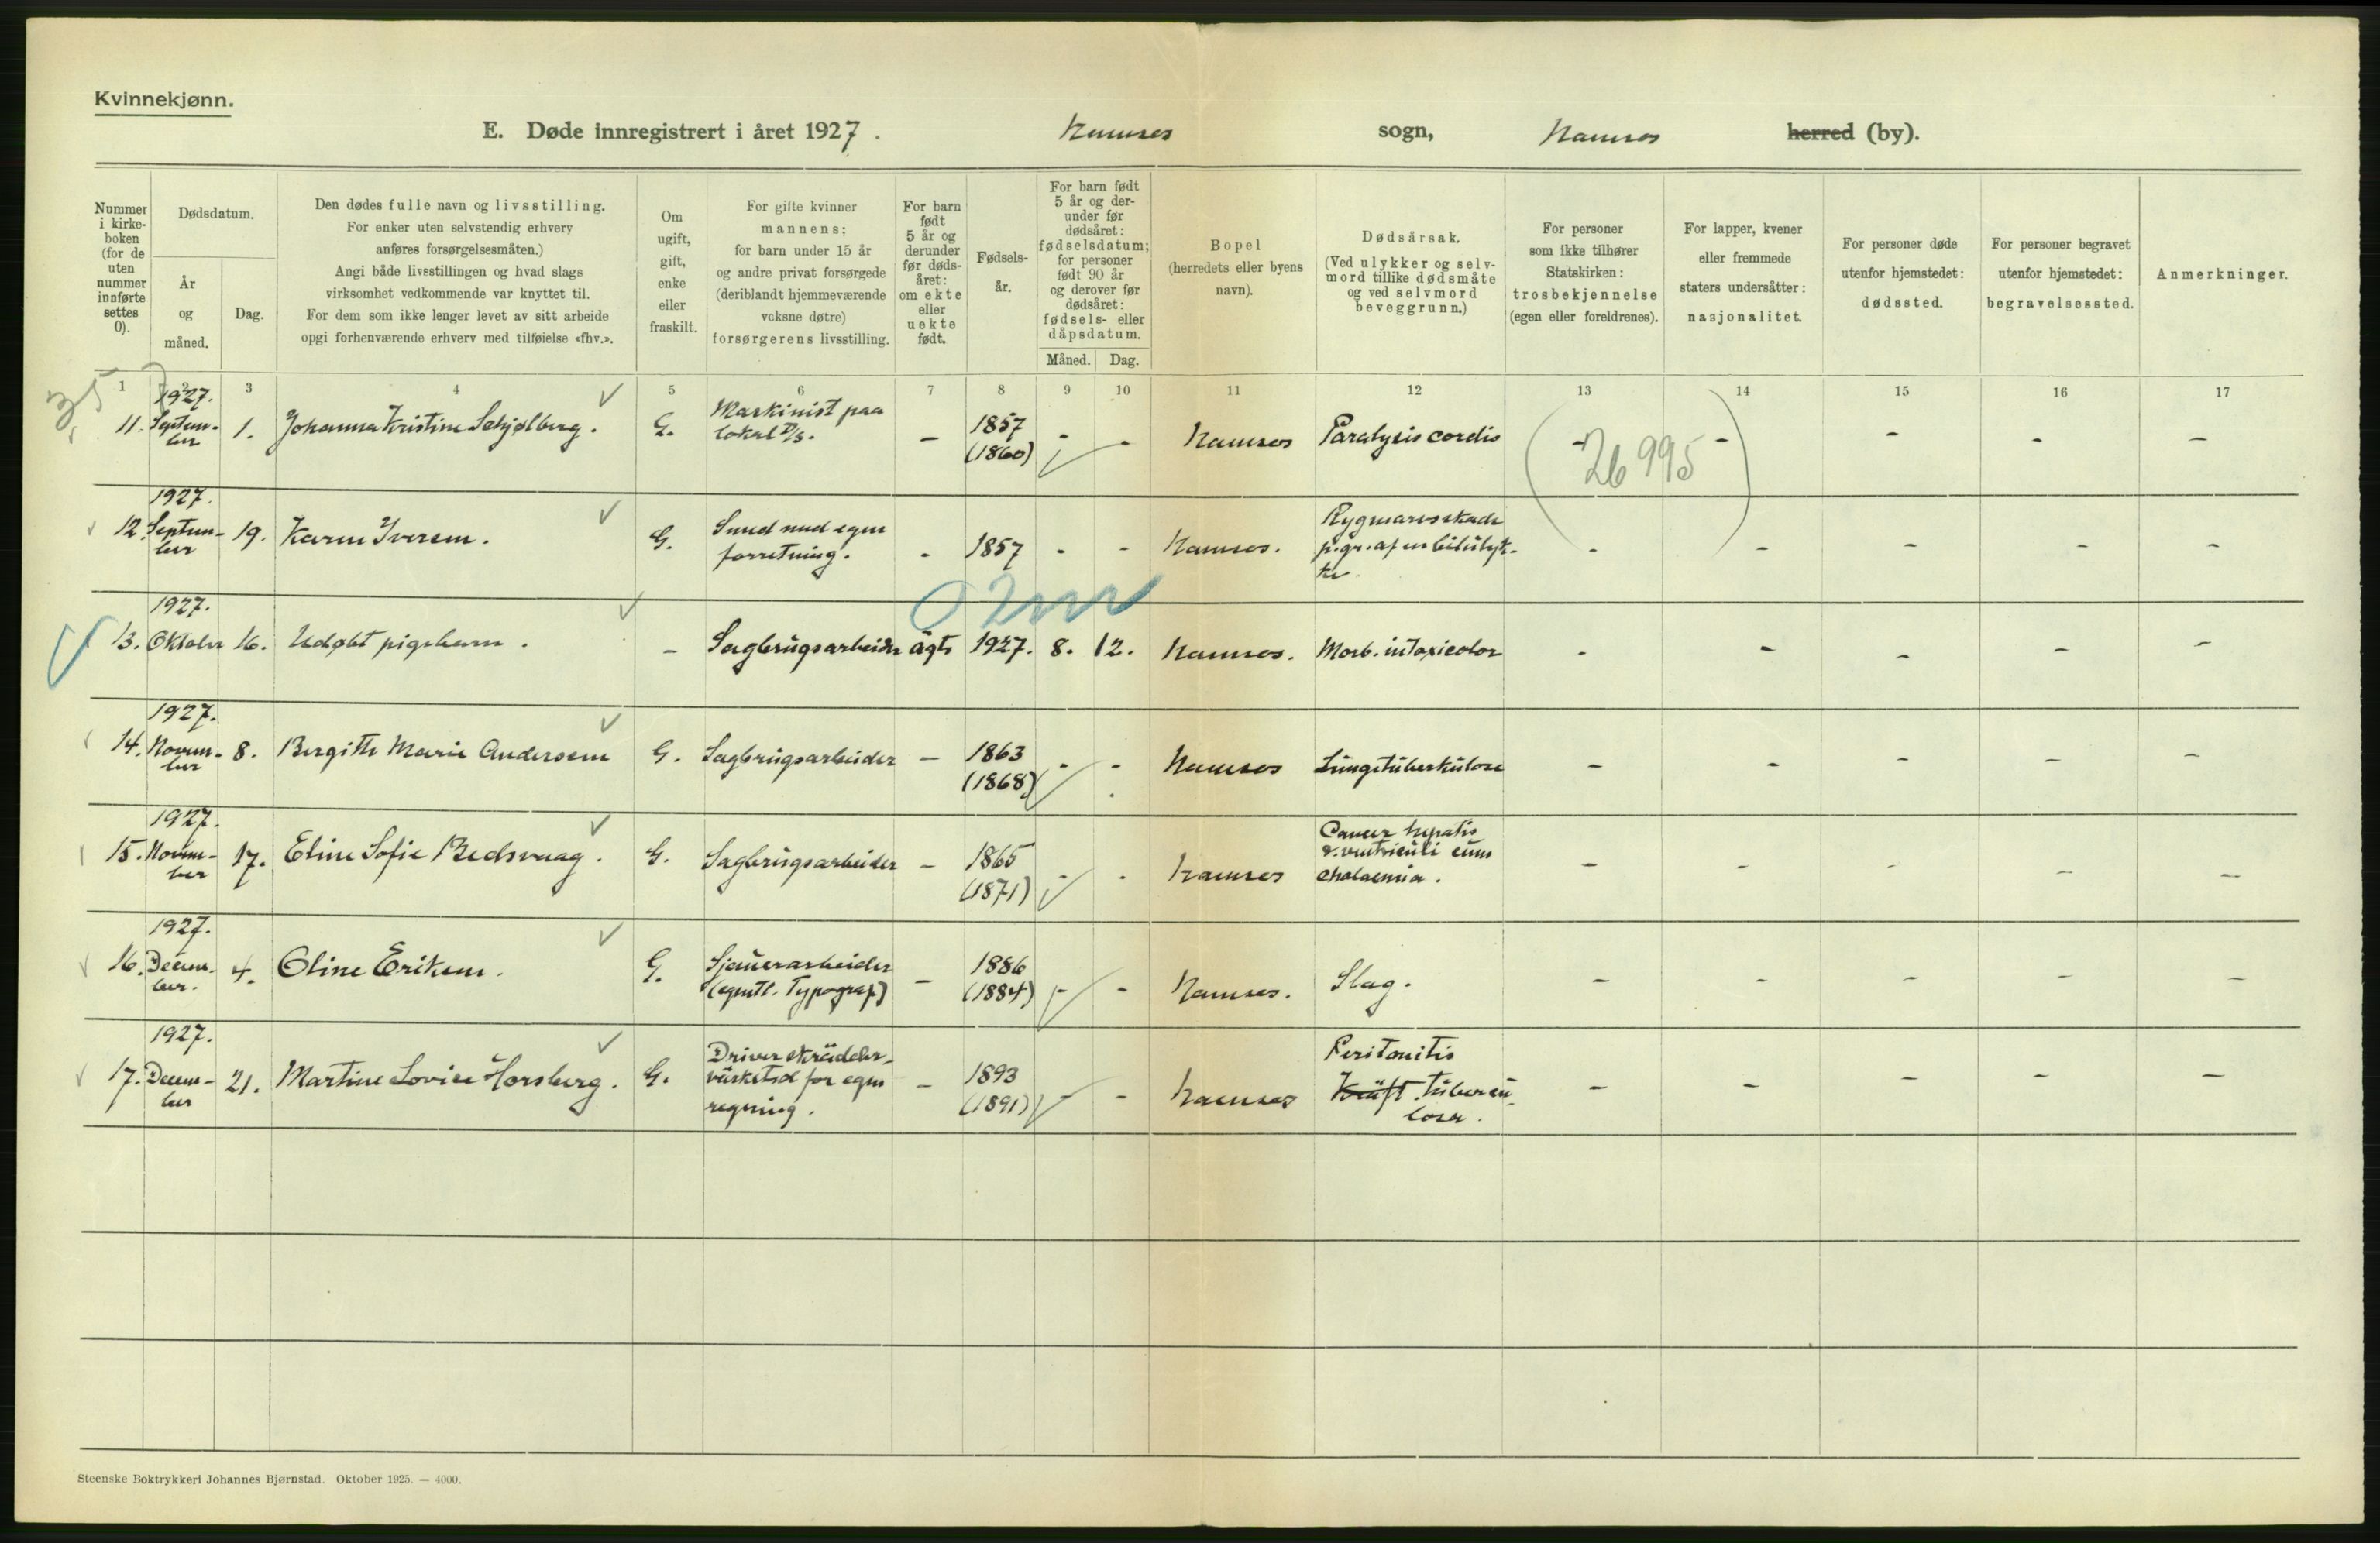 Kvinnekjønn.
E. Døde innregistrert i året 1927. Namsos sogn, Namsos herred (by).
Nummer i kirke- boken (for de uten nummer innførte settes 0).
Dødsdatum.
År og måned.
Dag.
Den dødes fulle navn og livsstilling.
For enker uten selvstendig erhverv
anføres forsørgelsesmåten.)
Angi både livsstillingen og hvad slags
virksomhet vedkommende var knyttet til.
For dem som ikke lenger levet av sitt arbeide
opgi forhenværende erhverv med tilføielse «fhv.».
Om ugift, gift, enke eller fraskilt.
For gifte kvinner
mannens;
for barn under 15 år
og andre privat forsørgede
(deriblandt hjemmeværende
voksne døtre)
forsørgerens livsstilling.
For barn født 5 år og derunder før døds- året: om ekte eller uekte født.
Fødsels- år.
For barn født 5 år og der- under før dødsåret: fødselsdatum; for personer født 90 år og derover før dødsåret: fødsels- eller dåpsdatum.
Måned. Dag.
Bopel
(herredets eller byens
navn).
Dødsårsak.
(Ved ulykker og selv-
mord tillike dødsmåte
og ved selvmord
beveggrunn.)
For personer
som ikke tilhører
Statskirken:
trosbekjennelse
(egen eller foreldrenes).
For lapper, kvener
eller fremmede
staters undersåtter:
nasjonalitet.
For personer døde
utenfor hjemstedet:
dødssted.
For personer begravet
utenfor hjemstedet:
begravelsessted.
Anmerkninger.
1 2 3 4 5 6 7 8 9 10 11 12 13 14 15 16 17
35
11. 1927. Septem- ber 1. Johanna Kristine Schjølberg. G. Maskinist paa lokal D/S. - 1857 (1860) - - Namsos Paralysis cordis - - - - -
26995
12. 1927. Septem- ber 19. Karen Iversen. G. Smed med egen forretning. - 1857 - - Namsos. Rygmarvsskade p.gr. af en bilulyk- ke. - - - - -
13. 1927. Oktober 16. Udøbt pigebarn. - Sagbrugsarbeider ägte 1927. 8. 12. Namsos. Morb. intoxicator - - - - -
14. 1927. Novem- ber 8. Bergitte Marie Andersen G. Sagbrugsarbeider - 1863 (1868) - - Namsos Lungetuberkulose - - - - -
15. 1927. Novem- ber 17. Eline Sofie Bedsvaag. G. Sagbrugsarbeider - 1865 (1871) - - Namsos Cancer hepatis & ventriculi cum cholaemia. - - - - -
16. 1927. Decem- ber. 4. Oline Eriksen. G. Sjauerarbeider (egentl. Typograf) - 1886 (1884) - - Namsos. Slag. - - - - -
17. 1927. Decem- ber 21. Martine Lovise Horsberg. G. Driver skrädder- värksted for egen regning. - 1893 (1891) - - Namsos Peritonitis Kräft. tubercu- losa. - - - - -
Steenske Boktrykkeri Johannes Bjørnstad. Oktober 1925. — 4000.